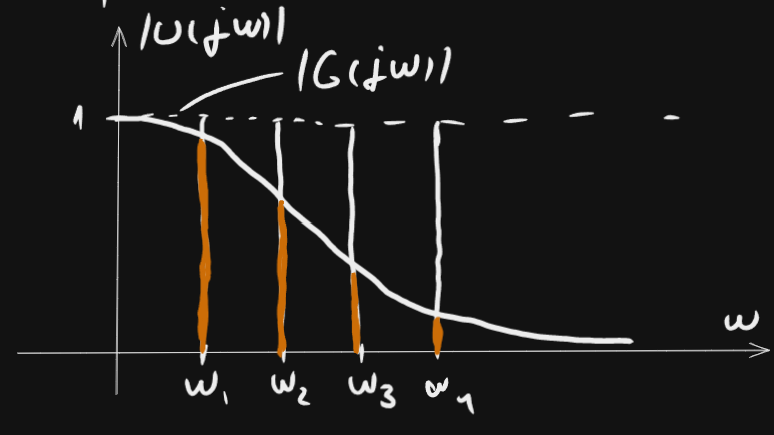 |U(jω)|
|G(jω)|
1
ω
ω₁ ω₂ ω₃ ω₄